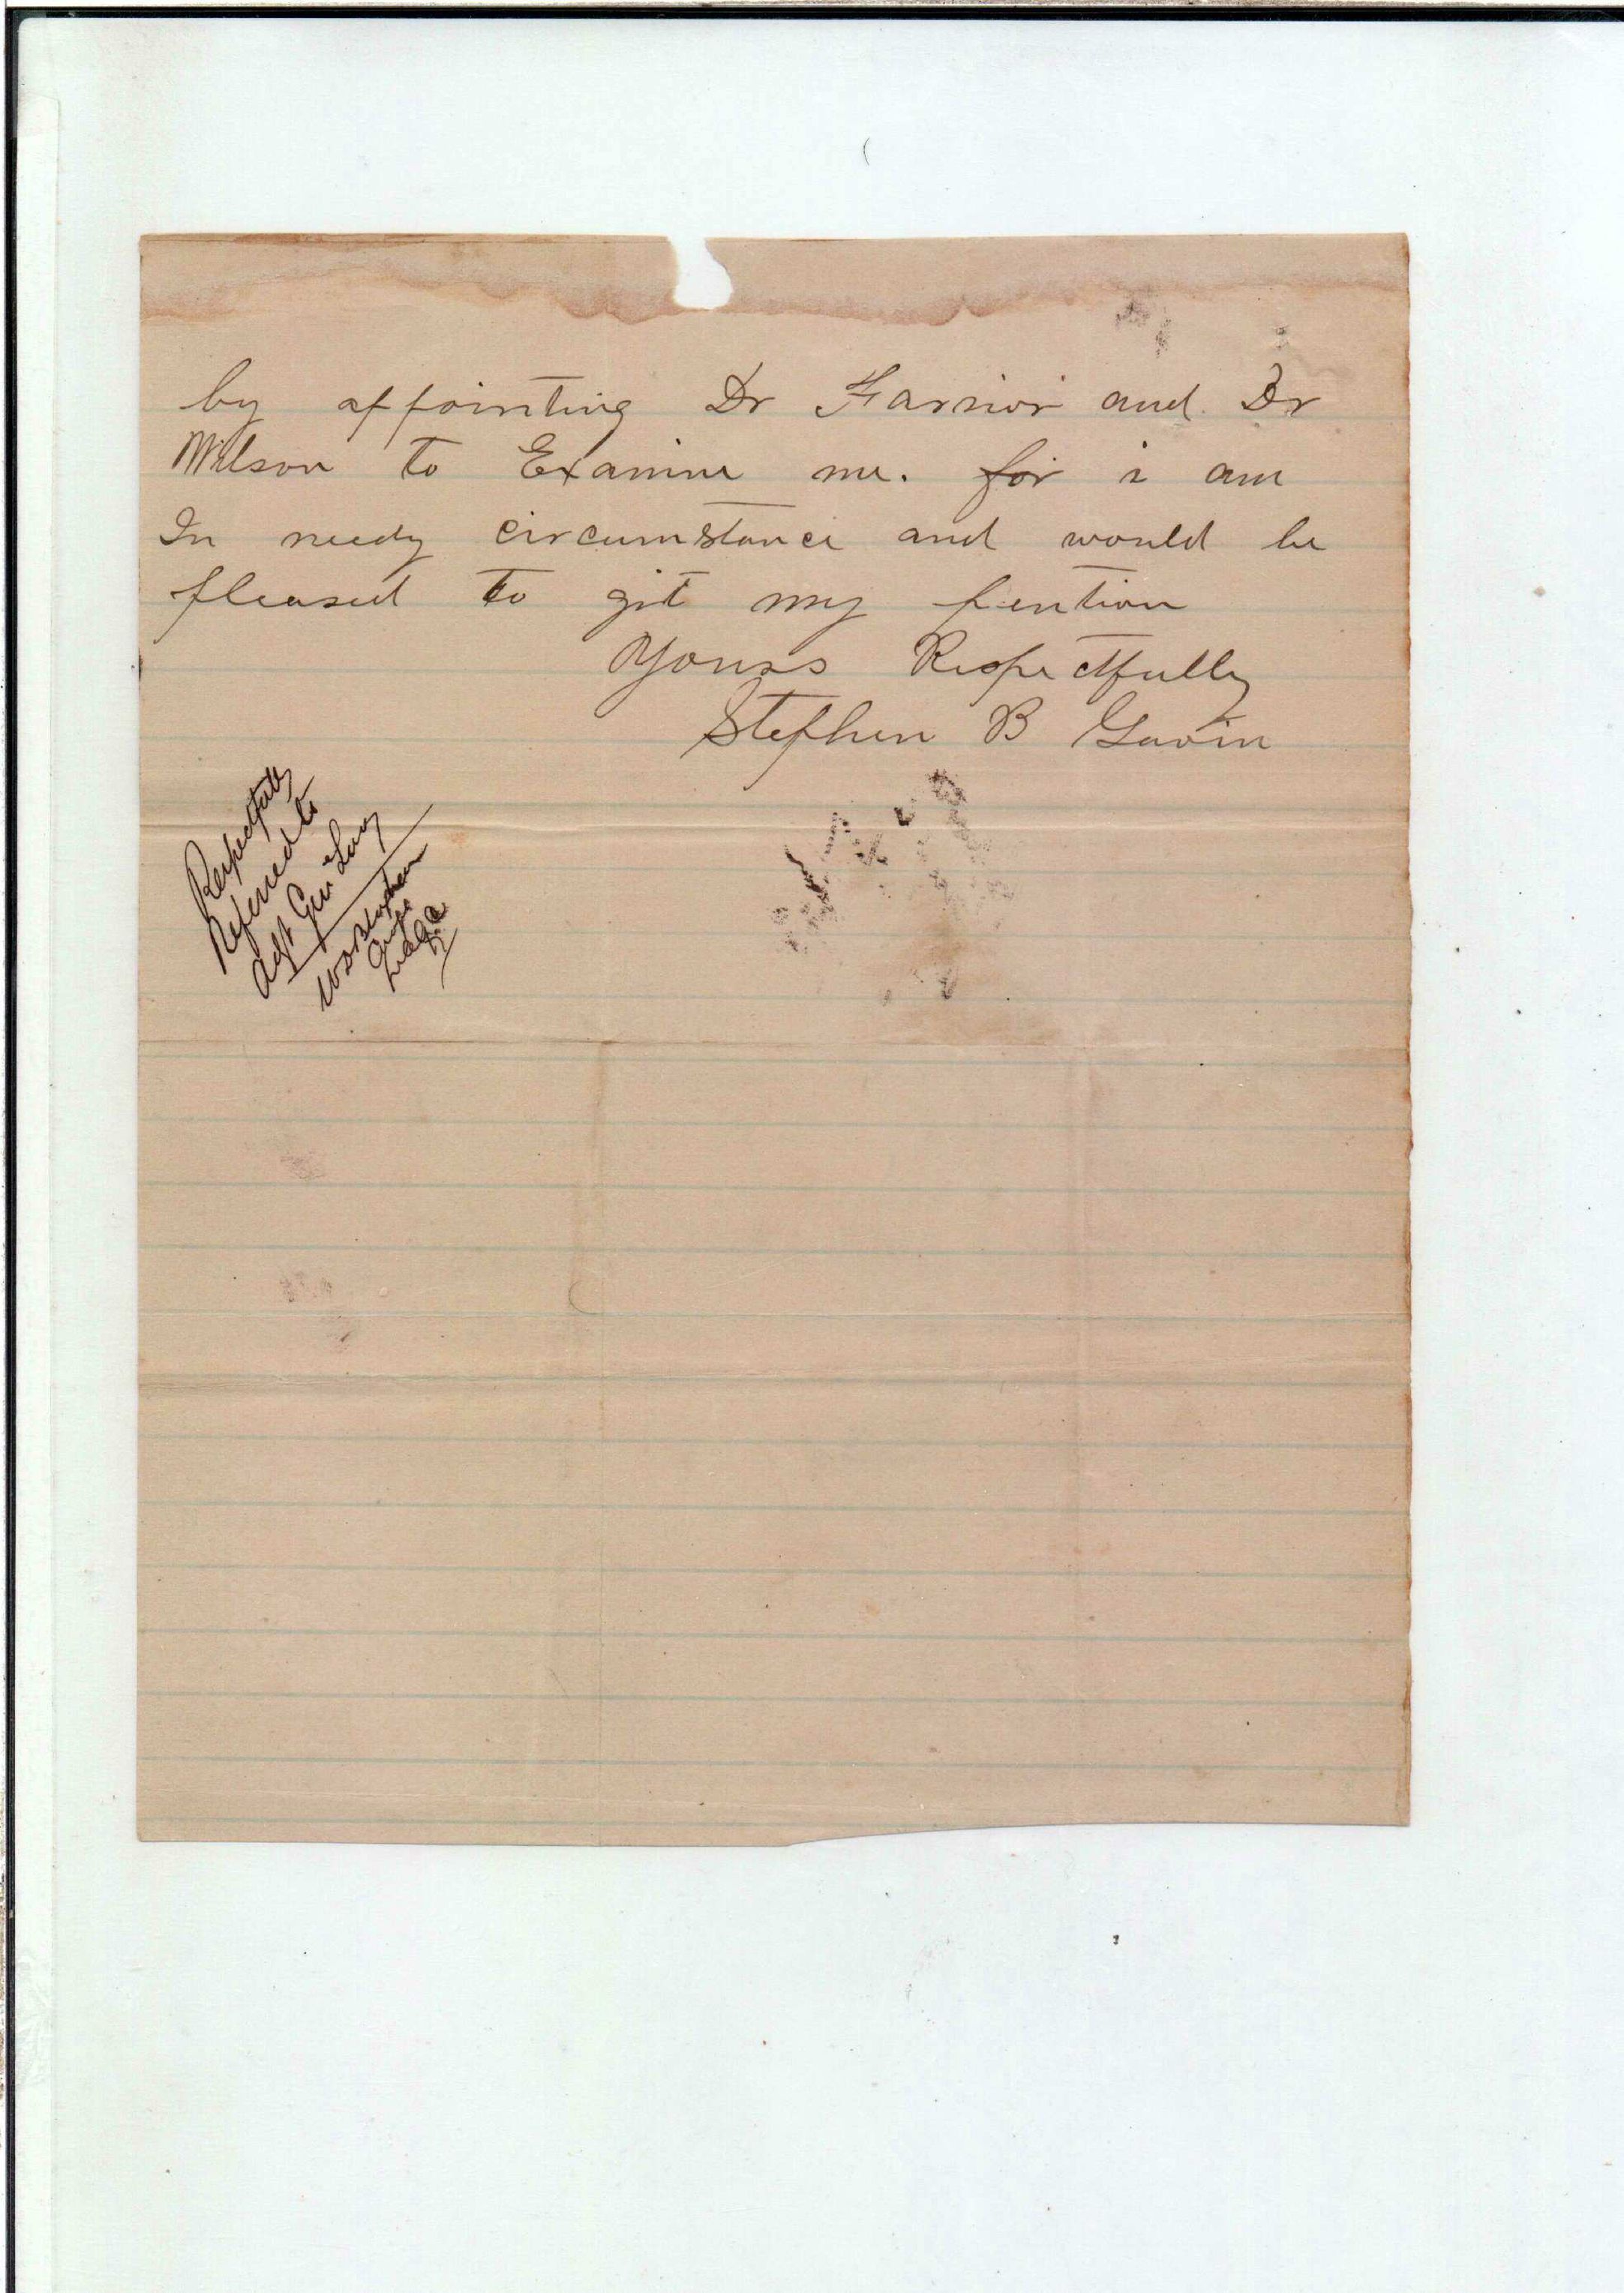 by appointing Dr Farrior and Dr
Wilson to Examine me. for i am
In needy circumstance and would be
pleased to git my pention
Yours Respectfully
Stephen B Gavin
Respectfully
Referred to
Adjt Gen